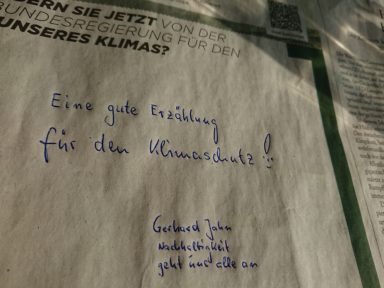 DERN SIE JETZT VON DER
BUNDESREGIERUNG FÜR DEN
UNSERES KLIMAS?
Eine gute Erzählung
für den Klimaschutz!
Gerhard Jahn
Nachhaltigkeit
geht uns alle an